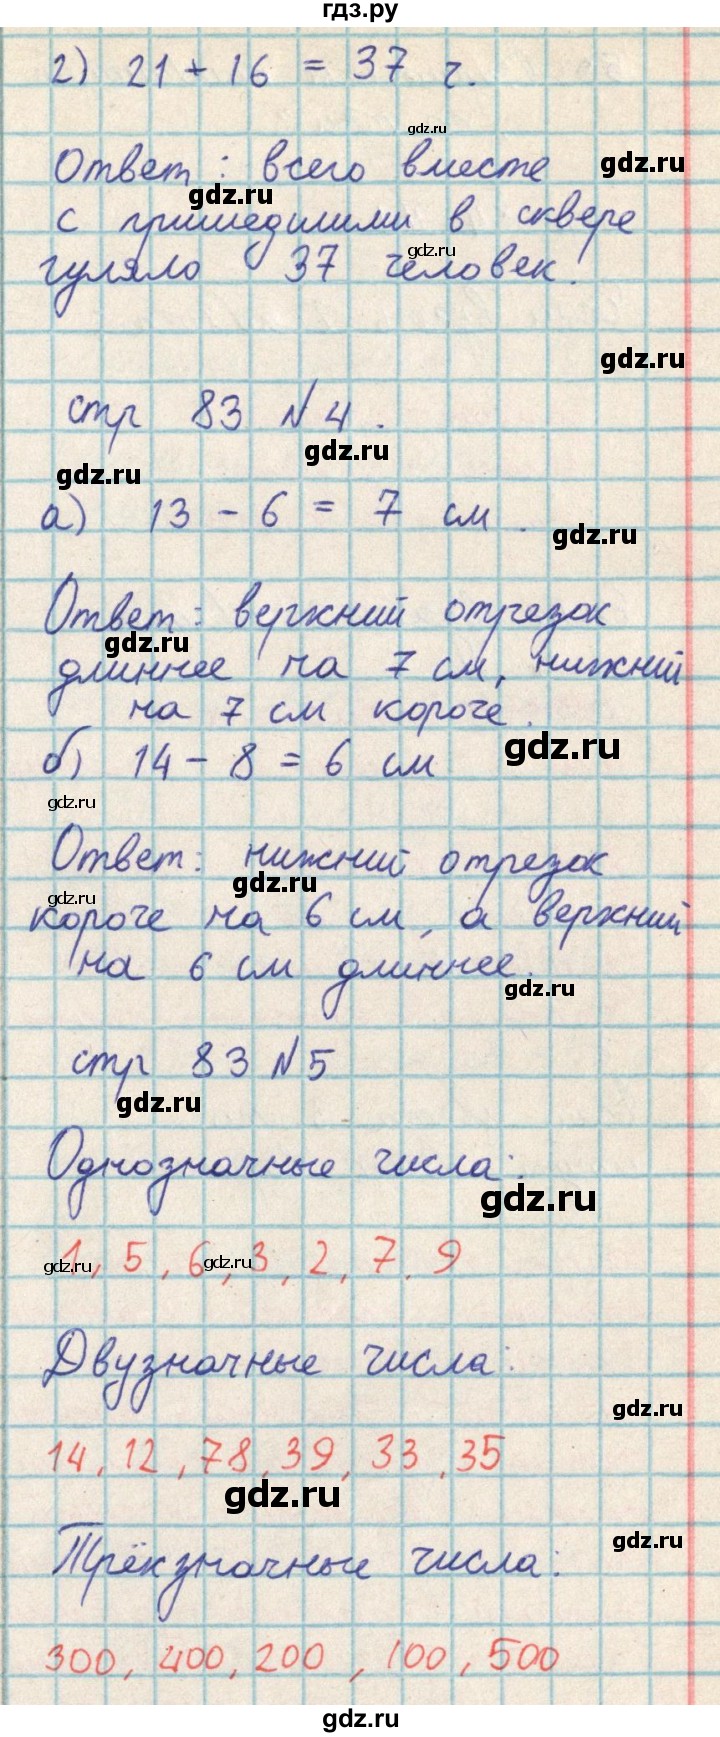 гдз.ру
2) 21 + 16 = 37 ч.
gdz.ru
Ответ: всего вместе
gdz.ru
gdz.ru
с пришедшими в сквере
gdz.ru
гуляло 37 человек.
gdz.ru
стр 83 №4.
gdz.ru
gdz.ru
а) 13 - 6 = 7 см.
gdz.ru
Ответ: верхний отрезок
gdz.ru
длиннее на 7 см, нижний
на 7 см короче.
gdz.ru
б) 14 - 8 = 6 см
gdz.ru
Ответ: нижний отрезок
gdz.ru
gdz.ru
короче на 6 см, а верхний
на 6 см длиннее.
gdz.ru
стр 83 №5
gdz.ru
Однозначные числа:
gdz.ru
1, 5, 6, 3, 2, 7, 9
gdz.ru
gdz.ru
Двузначные числа:
gdz.ru
14, 12, 78, 39, 33, 35
gdz.ru
gdz.ru
Трёхзначные числа:
300, 400, 200, 100, 500
gdz.ru